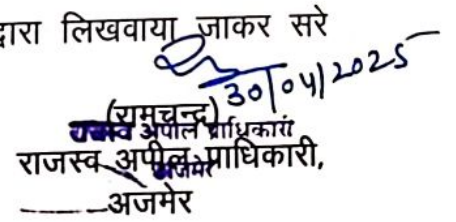 द्वारा लिखवाया जाकर सरे
30/04/2025
(रामचन्द्र)
राजस्व अपील प्राधिकारी
राजस्व अपील प्राधिकारी,
अजमेर
अजमेर